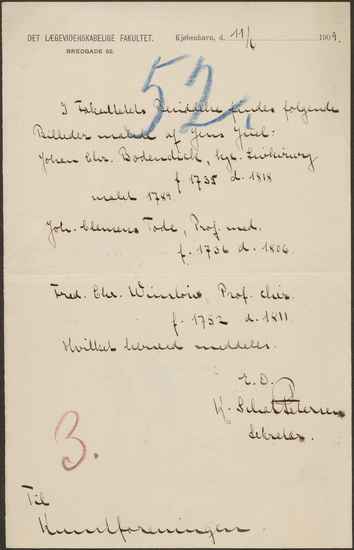 DET LÆGEVIDENSKABELIGE FAKULTET.
BREDGADE 62.
Kjøbenhavn, d. 11/6 1909.
52.
I Fakultetets Besiddelse findes følgende
Billeder malede af Jens Juel:
Johan Chr. Bodendick, kgl. Livkirurg
f 1735 d. 1818
malet 1784.
Joh. Clemens Tode, Prof. med.
f. 1736 d. 1806.
Fred. Chr. Winsløw, Prof. chir.
f. 1752 d. 1811.
Hvilket herved meddeles.
E. O.
K. Petersen
Sekretær.
3.
Til
Kunstforeningen.